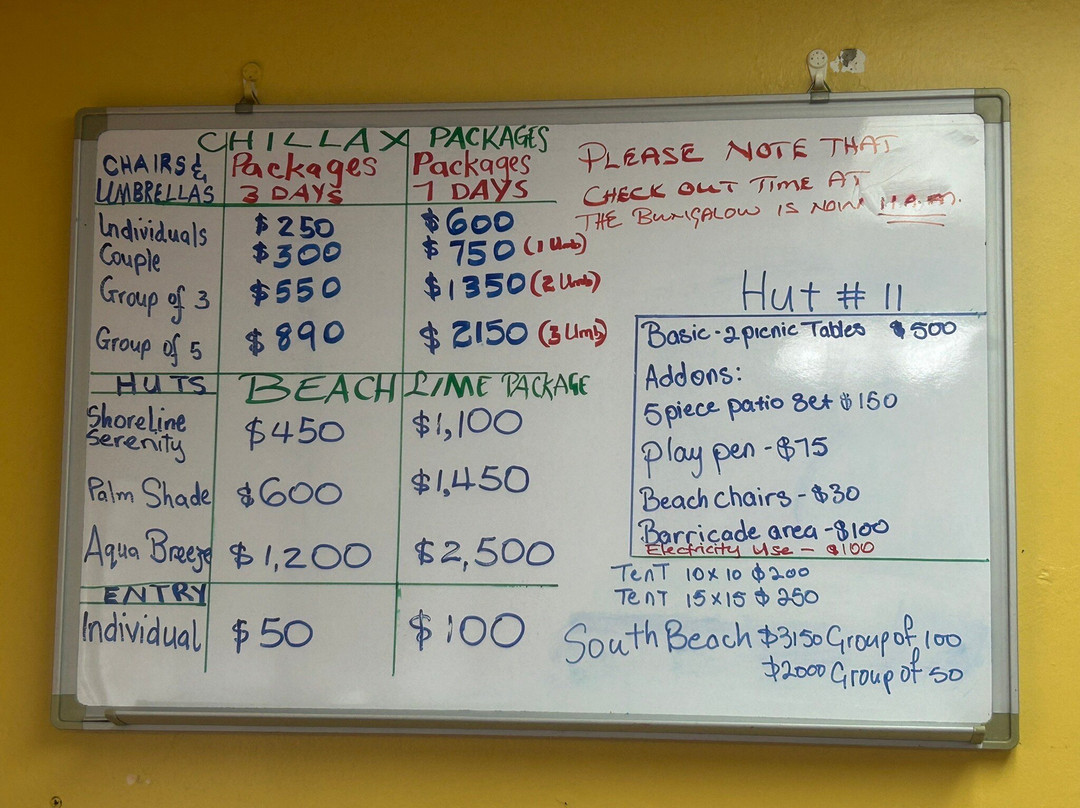 CHILLAX PACKAGES
CHAIRS & UMBRELLAS Packages 3 DAYS Packages 7 DAYS
Individuals $250 $600
Couple $300 $750 (1 Umb)
Group of 3 $550 $1350 (2 Umb)
Group of 5 $890 $2150 (3 Umb)
HUTS BEACH LIME PACKAGE
Shoreline Serenity $450 $1,100
Palm Shade $600 $1,450
Aqua Breeze $1,200 $2,500
ENTRY
Individual $50 $100
PLEASE NOTE THAT
CHECK OUT TIME AT
THE BUNGALOW IS NOW 11 A.M.
Hut # 11
Basic - 2 picnic Tables $500
Addons:
5 piece patio Set $150
Play pen - $75
Beach chairs - $30
Barricade area - $100
Electricity Use - $100
TENT 10 x 10 $200
TENT 15 x 15 $250
South Beach $3150 Group of 100
$2000 Group of 50